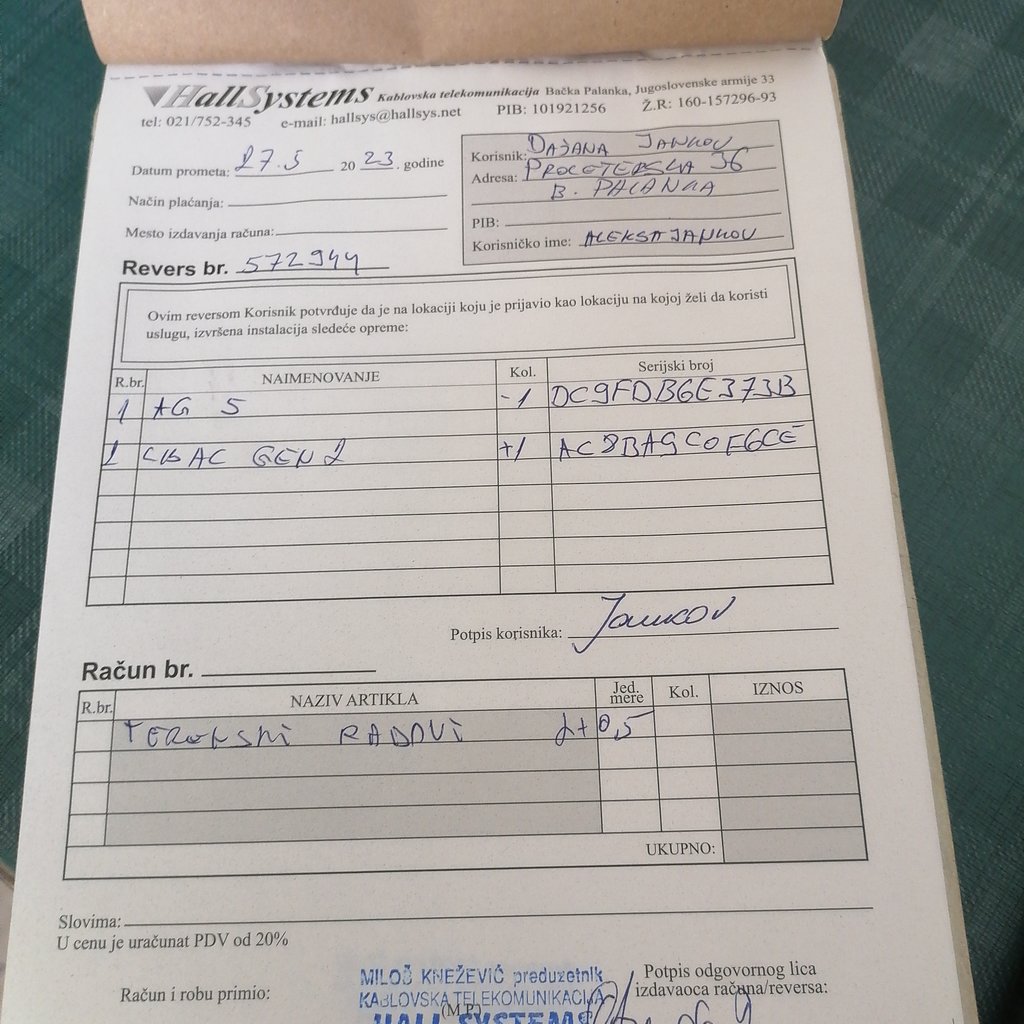 HallSystems Kablovska telekomunikacija Bačka Palanka, Jugoslovenske armije 33
tel: 021/752-345 e-mail: hallsys@hallsys.net PIB: 101921256 Ž.R: 160-157296-93
Datum prometa: 27.5 2023. godine
Način plaćanja:
Mesto izdavanja računa:
Korisnik: DAJANA JANKOV
Adresa: PROLETERSKA 36
B. PALANKA
PIB:
Korisničko ime: ALEKSAJANKOV
Revers br. 572944
Ovim reversom Korisnik potvrđuje da je na lokaciji koju je prijavio kao lokaciju na kojoj želi da koristi
uslugu, izvršena instalacija sledeće opreme:
R.br. NAIMENOVANJE Kol. Serijski broj
1 AG 5 -1 DC9FDB6E373B
1 LBAC GEN2 +1 AC8BA9C0F6CE
Potpis korisnika: Jankov
Račun br.
R.br. NAZIV ARTIKLA Jed. mere Kol. IZNOS
TERENSKI RADOVI 2+0,5
UKUPNO:
Slovima:
U cenu je uračunat PDV od 20%
Račun i robu primio:
MILOŠ KNEŽEVIĆ preduzetnik
KABLOVSKA TELEKOMUNIKACIJA
(M.P.)
HALL SYSTEMS
Potpis odgovornog lica
izdavaoca računa/reversa: